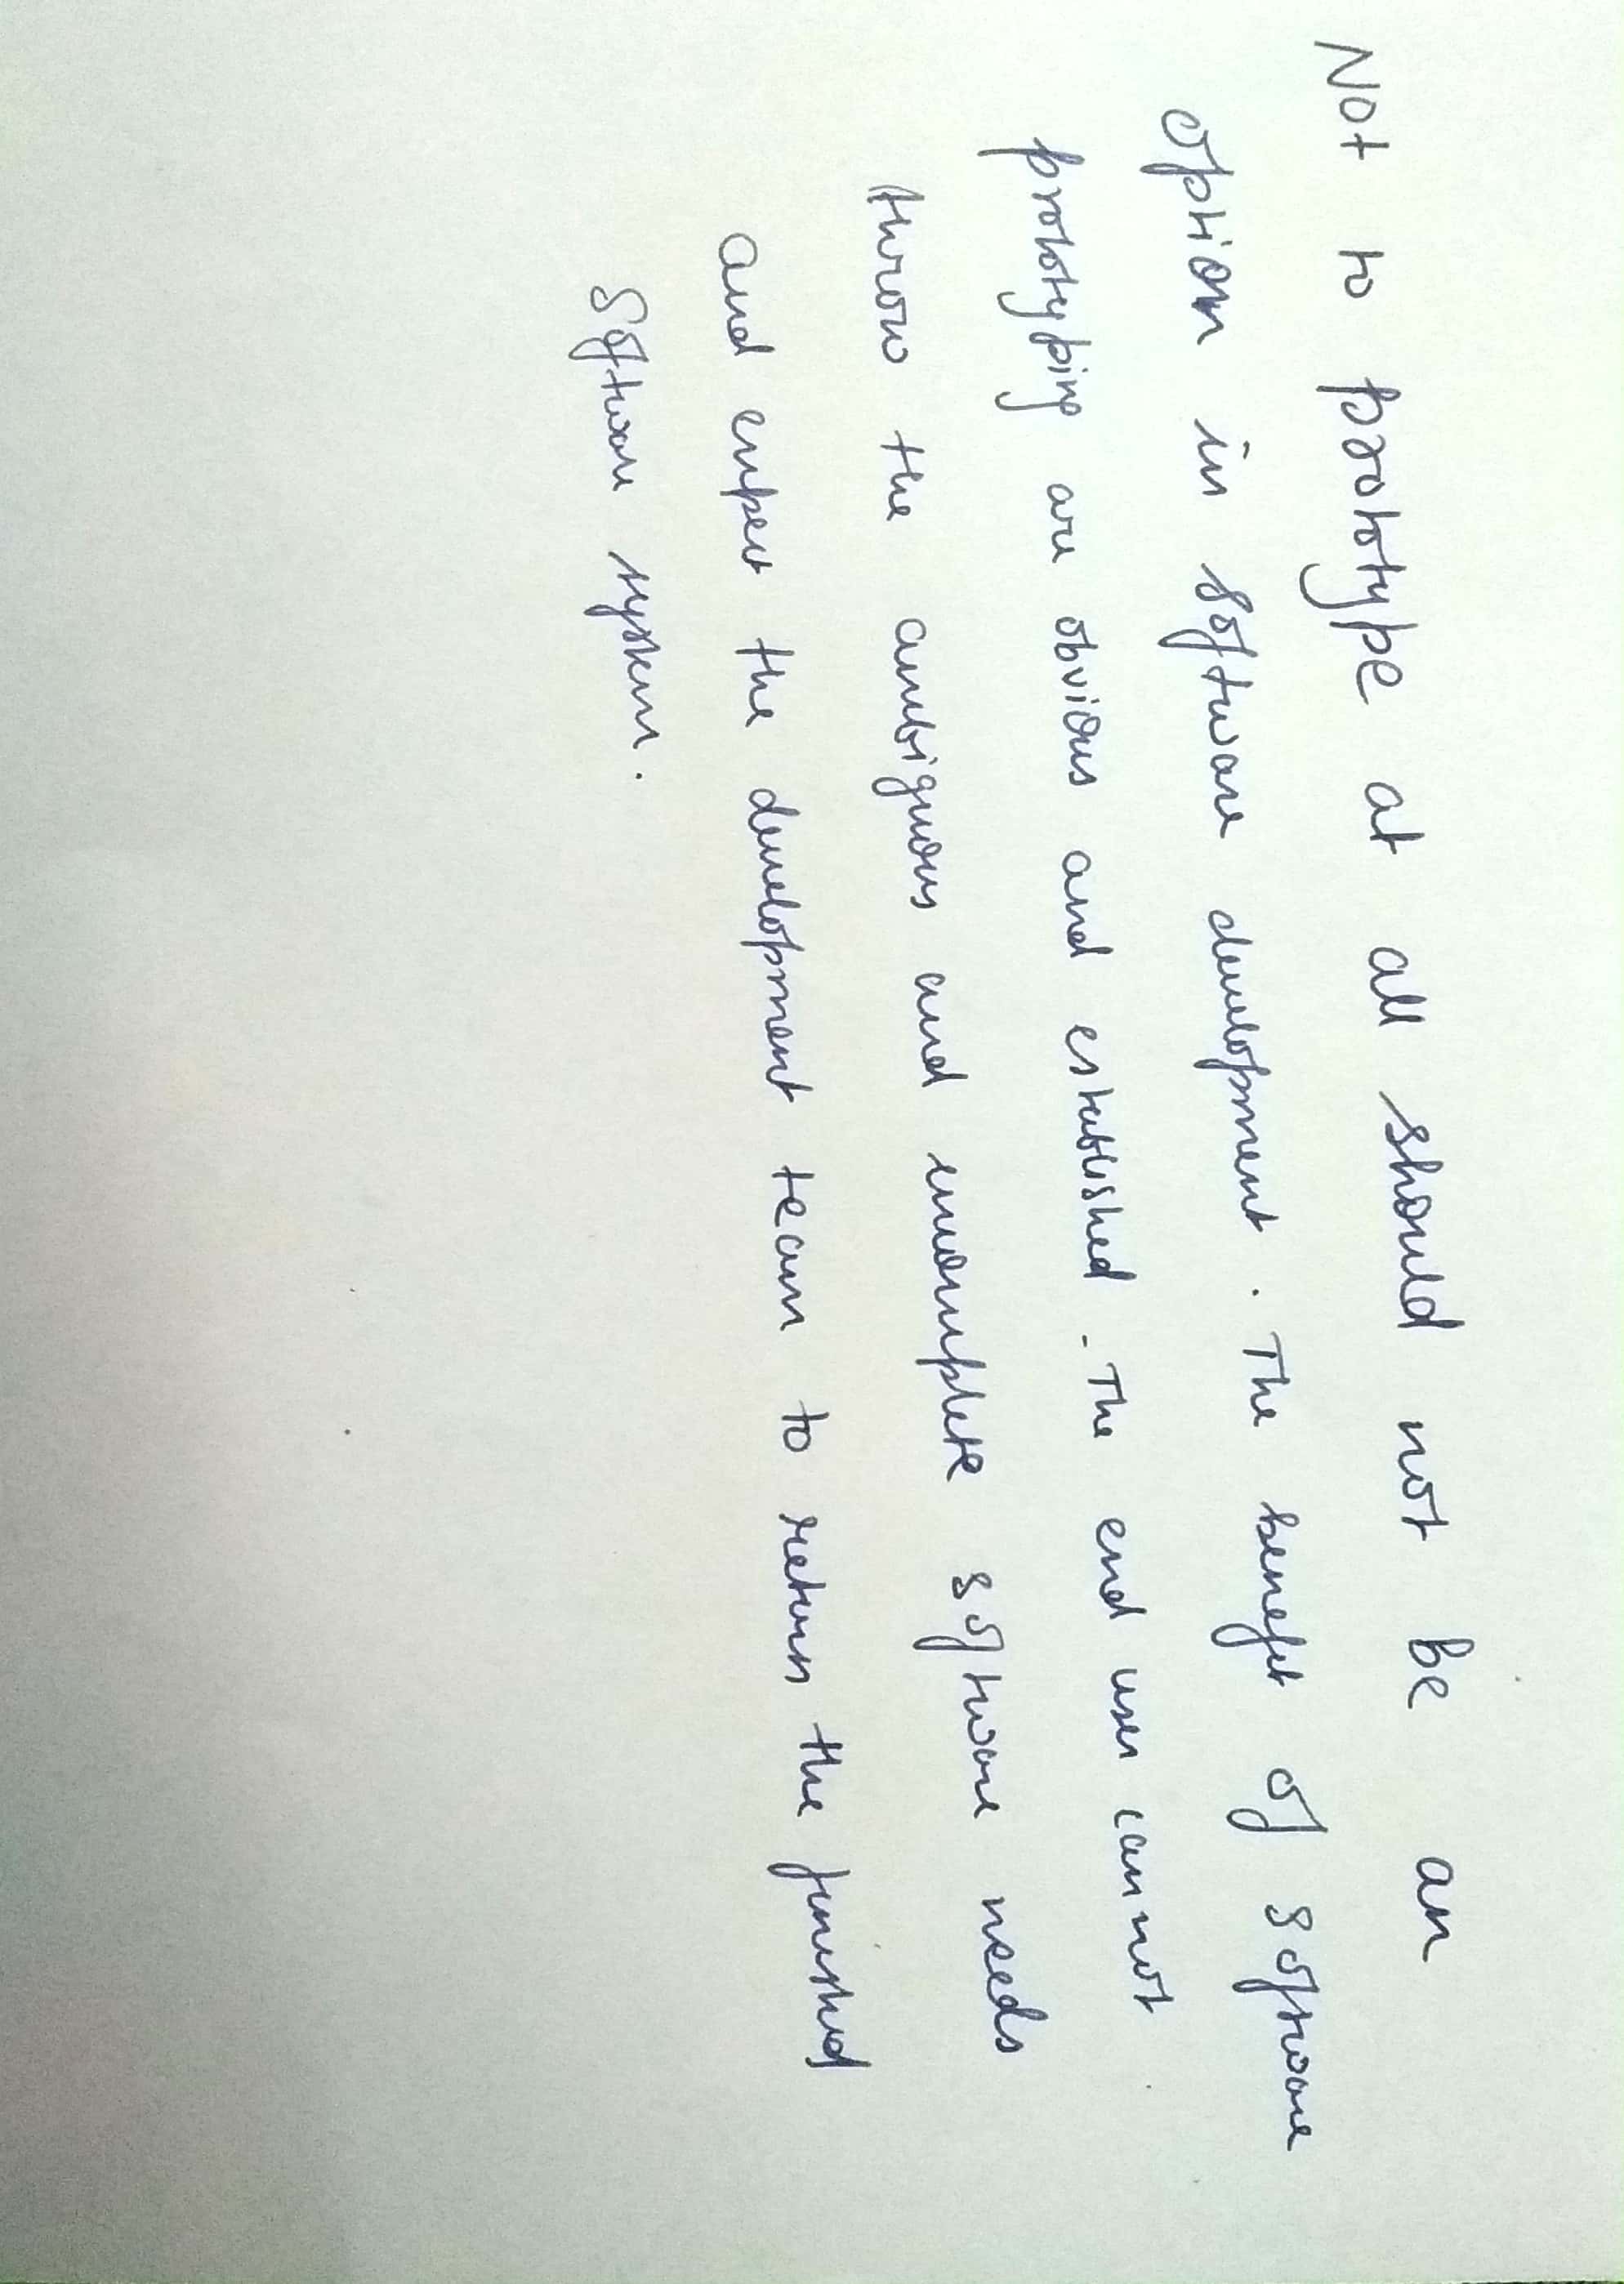 Not to prototype at all should not be an
option in software development. The benefit of software
prototyping are obvious and established. The end user cannot
throw the ambiguous and incomplete software needs
and expect the development team to return the finished
Software system.